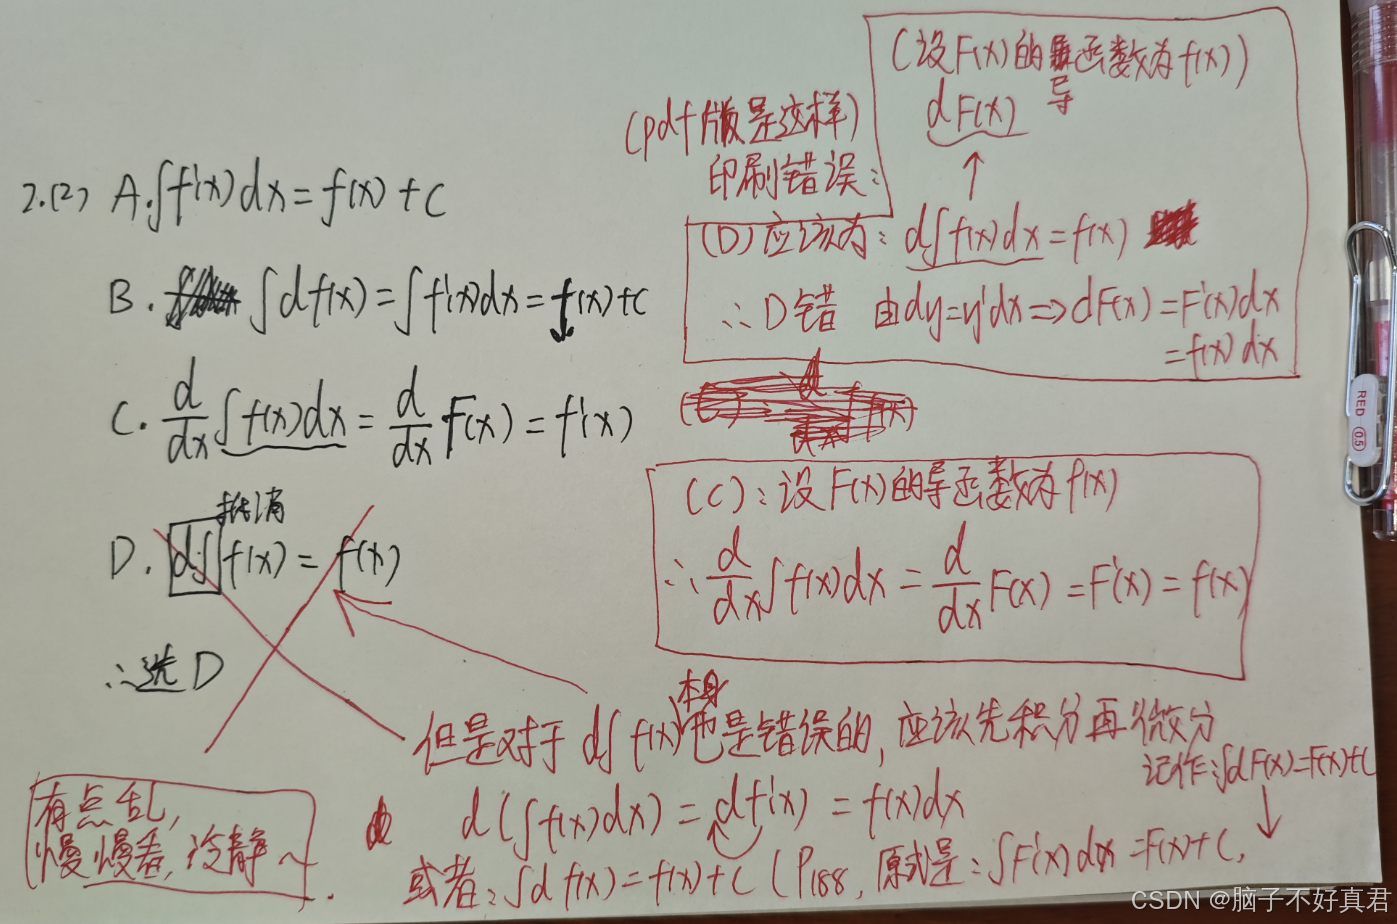 (设F(x)的导函数为f(x))
导
dF(x)
(pdf版是这样)
印刷错误:
2.(2) A.∫f'(x)dx=f(x)+C
(D)应该为:d∫f(x)dx=f(x)
B. ∫df(x)=∫f'(x)dx=f(x)+C
∴D错 由dy=y'dx⇒dF(x)=F'(x)dx
=f(x)dx
C. d/dx ∫f(x)dx = d/dx F(x) = f'(x)
(C):设F(x)的导函数为f(x)
∴ d/dx ∫f(x)dx = d/dx F(x) = F'(x) = f(x)
抵消
D. d∫f(x)=f(x)
∴选D
但是对于d∫f(x)本身也是错误的,应该先积分再微分
记作:∫dF(x)=F(x)+C
有点乱,
慢慢看,冷静~
d(∫f(x)dx)=df'(x)=f(x)dx
或者:∫df(x)=f(x)+C (P188,原式是:∫F'(x)dx=F(x)+C,
RED
0.5
CSDN @脑子不好真君